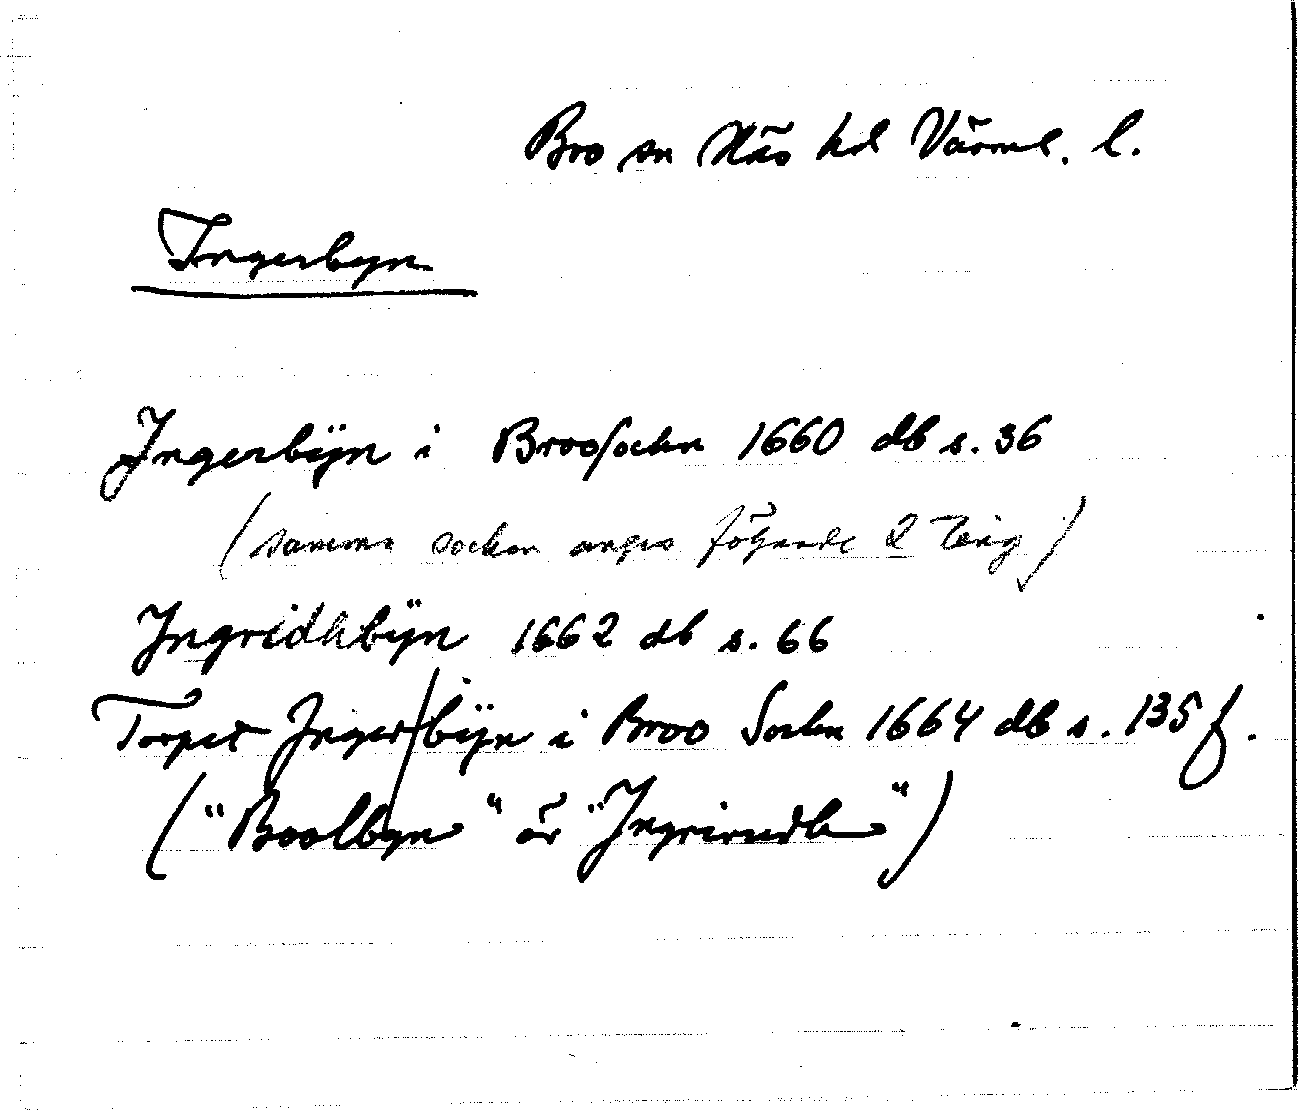 Bro sn Näs hd Värml. l.
Ingerbyn
Ingerbÿn i Broosocken 1660 db s. 36
(samma socken anges följande 2 ting)
Ingridhbÿn 1662 db s. 66
Torpet Inger/bÿn i Broo Socken 1664 db s. 135 f.
("Boolbyn" är